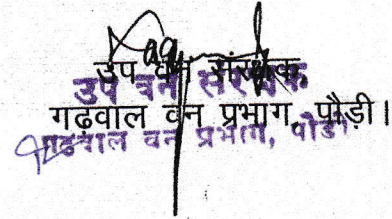 उप वन संरक्षक,
उप वन संरक्षक
गढ़वाल वन प्रभाग, पौड़ी।
गढ़वाल वन प्रभाग, पौड़ी